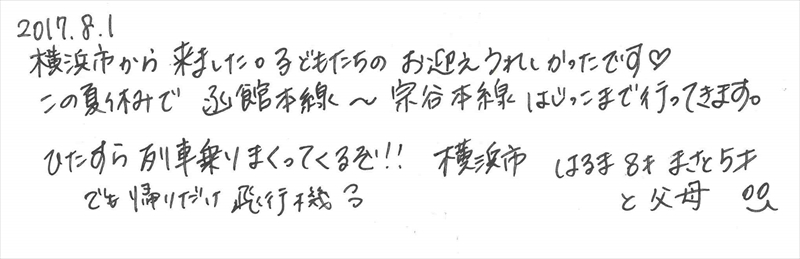 2017.8.1
横浜市から来ました。子どもたちのお迎えうれしかったです♡
この夏休みで 函館本線〜宗谷本線はじっこまで行ってきます。
ひたすら列車乗りまくってくるぞ!! 横浜市 はるま8才 まさと5才
でも帰りだけ飛行機 と父母